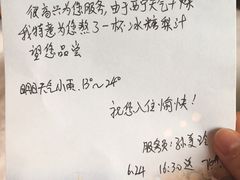 很高兴为您服务,由于西宁天气干燥
我特意为您熬了一杯冰糖梨汁
望您品尝
明日天气小雨,13°~24°
祝您入住愉快!
服务员:孙
6.24 16:30送